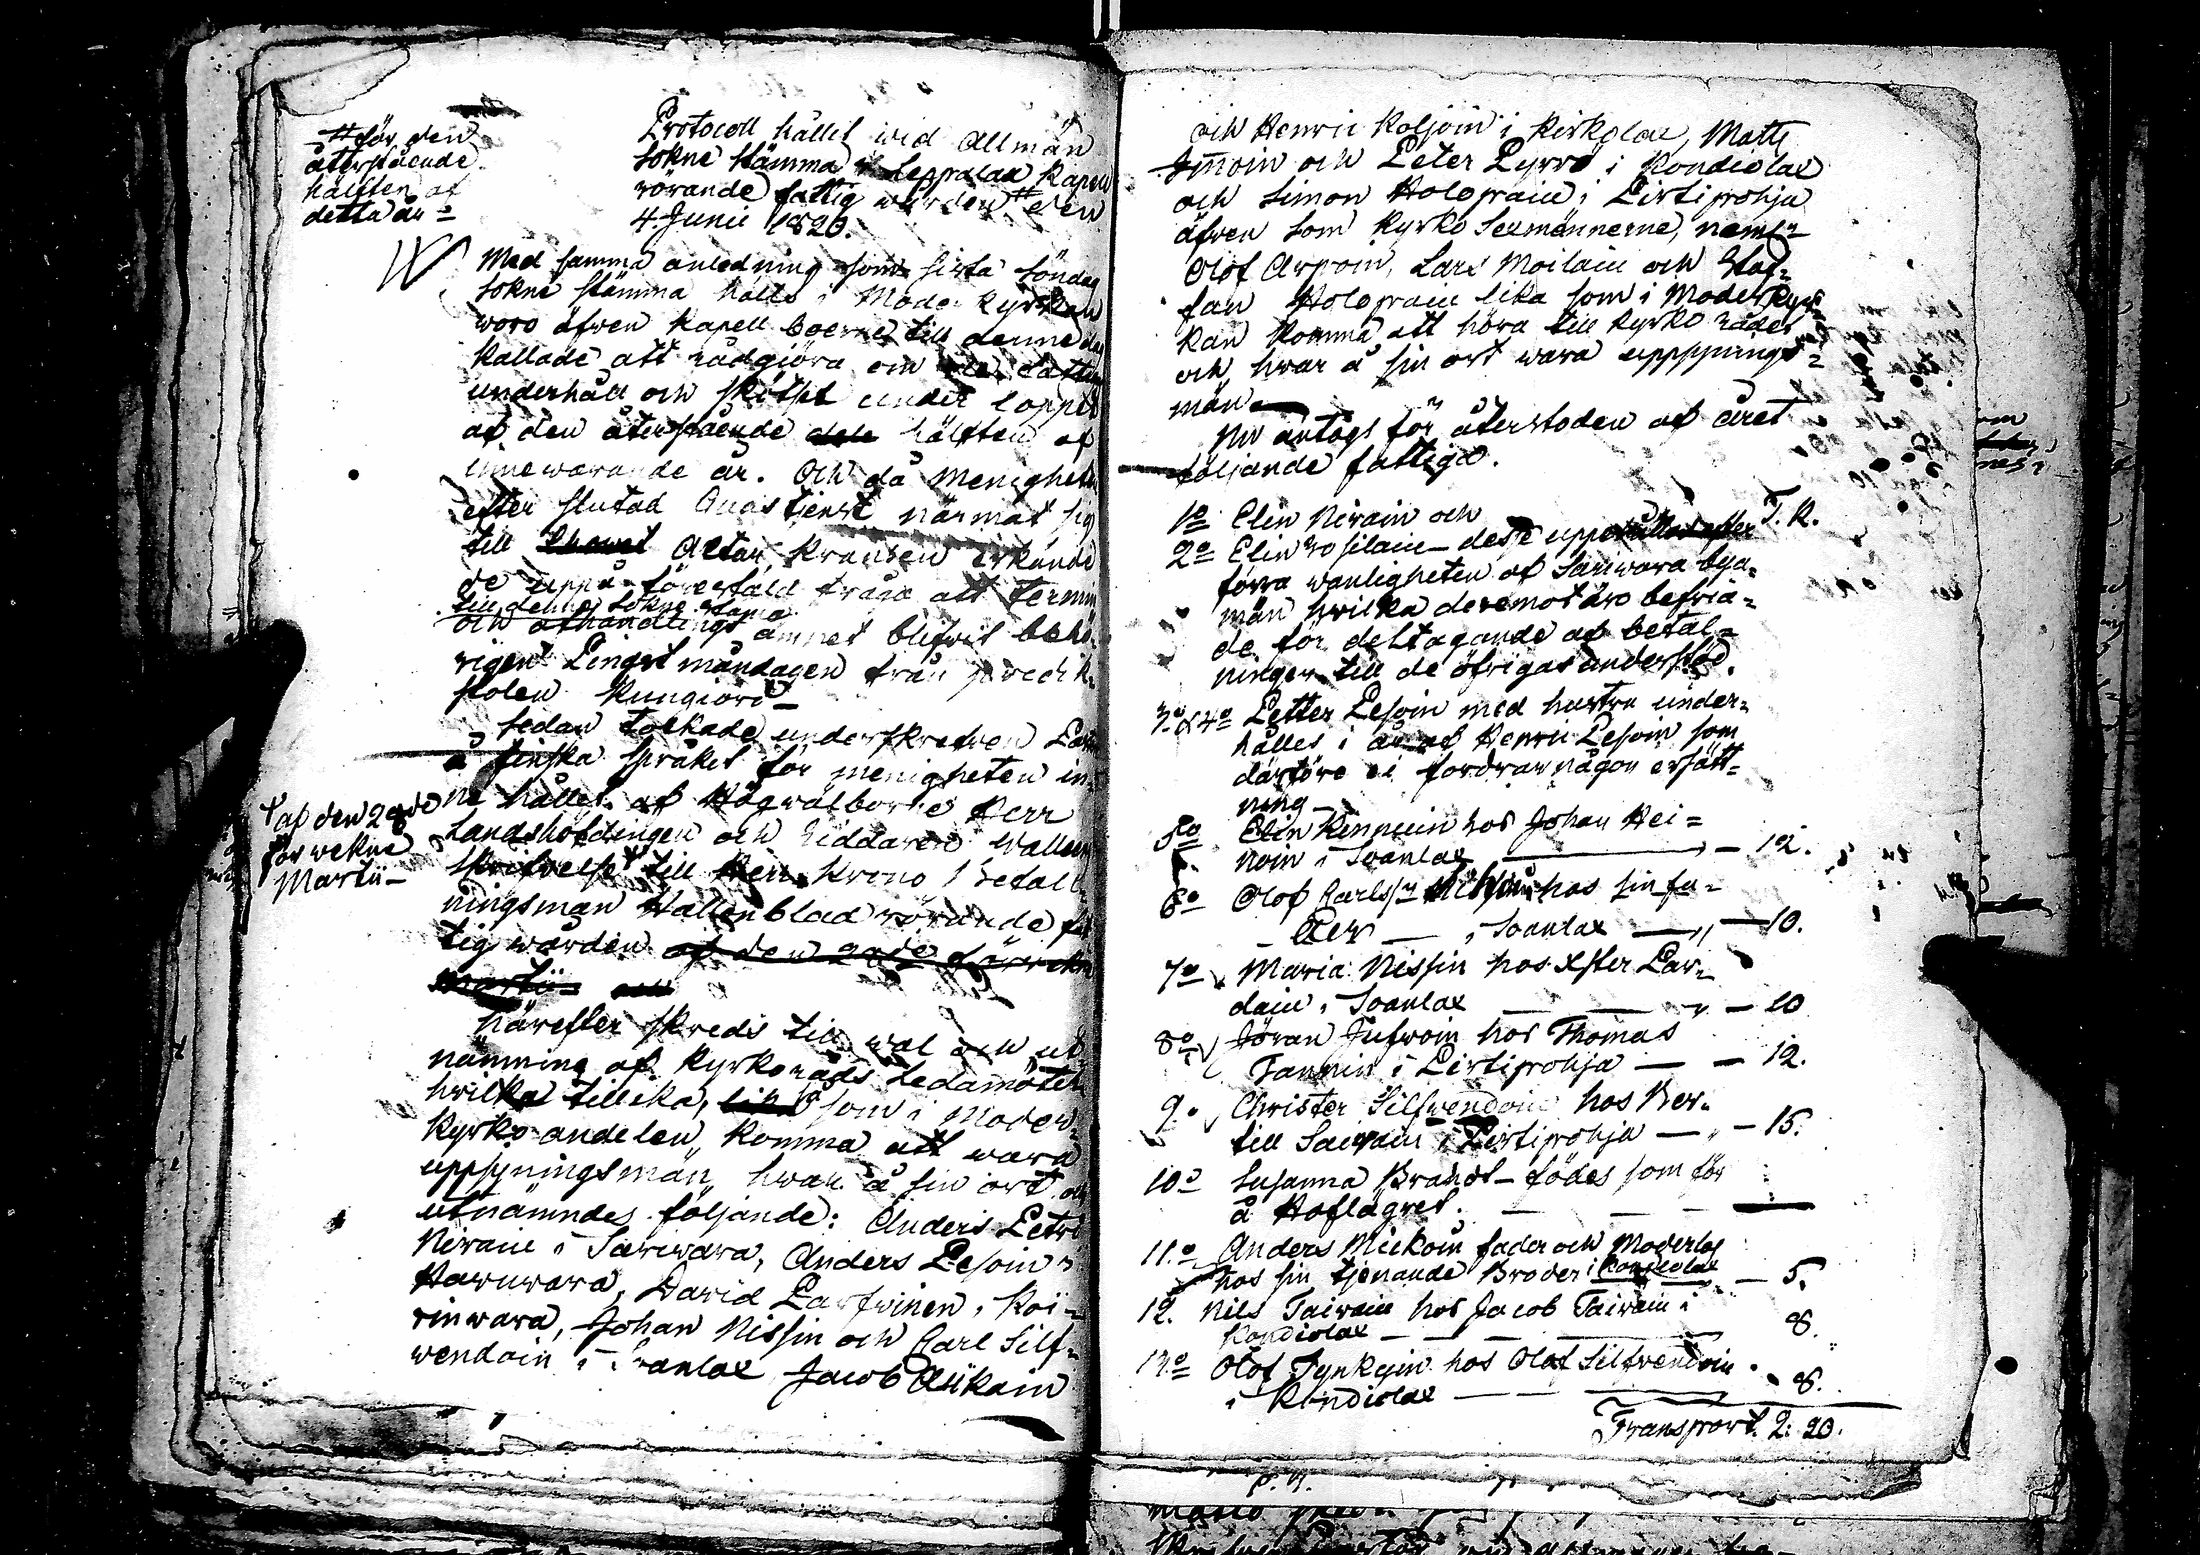 # för den
återstående
hälften af
detta år
Protocoll hållit wid Allmän
Sokne stämma i Leppälax Kapell
rörande fattig wården # den
4. Junii 1820.
Med samma anledning som sista söndag
Sokne stämma hålls i Moder kyrkan
woro äfwen Kapell boerne till denne dag
kallade att rådgiöra om de fattigas
underhåll och skötsel under loppet
af den återstående dele hälften af
innewarande år. Och då Menigheten
efter slutad Gudstjenst närmat sig
till Altar kransen erkände
de uppå föreståld fråga att termin
till denna Sokne stäma
och afhandlings ämnet blifwit behö-
rigen Pingst måndagen från predik-
stolen kungiord
Sedan tolkade underskrefwen
å finska språket för menigheten in-
ne hållet af Högwälborne Herr
† af den 29de
förwekne
Martii
Landshöfdingen och Riddaren Walleen
skrifwelse till Herr Krono Befall-
ningsman Hallenblad rörande fat-
tig wården af den 29de förwekne
Martii
Härefter skreds till wal och ut-
nämning af kyrkoråds Ledamöter
hwilka tillika, som i Moder-
kyrko andelen, komma att wara
uppsyningsmän, hwar å sin ort och
utnämndes följande: Anders Petri
Nirain i Sariwara, Anders Pesoin i
Hawuwara, David Parfwinen i Koi-
rinwara, Johan Nissin och Carl Silf-
wendoin i Soanlax Jacob Asikain
och Henric Koljoin i Kerkolax, Matts
Immoin och Peter Pyrrö i Kondiolax
och Simon Holopain i Pirtipohja
äfwen som Kyrko Sexmännerne, neml:n
Olof Arpoin, Lars Moilain och Staf-
fan Holopain lika som i Moderkyr-
kan komma att höra till kyrko rådet
och hwar å sin ort wara uppsynings-
män
Nu antogs för återstoden af året
följande fattiga.
1o Elin Nirain och T. K.
2o Elin Rosilain desse uppehålles efter
förra wanligheten af Sariwara bya-
män hwilka deremot äro befria-
de för deltagande af betal-
ningen till de öfrigas understöd.
3o & 4o Petter Pesoin med hustru under-
hålles i år af Henric Pesoin som
därföre ei fordrar någon ersätt-
ning
5o Elin Kinnuin hos Johan Hei-
noin i Soanlax — 12.
6o Olof Carlss:n hos sin fa-
der i Soanlax — 10.
7o Maria Nissin hos Ester Par-
dain i Soanlax — 10
8o Jöran Jufwoin hos Thomas
Tannin i Pirtipohja — 12.
9. Christer Silfwendoin hos Ber-
till Saiwain i Pirtipohja — 15.
10o Susanna Brandt födes som för
å Hoflägret. —
11.o Anders Miikoin fader och Moderlös
hos sin tjenande Broder i Kondiolax — 5.
12. Nils Taiwain hos Jacob Taiwain i
Kondiolax — 8.
13o Olof Tynkyin hos Olof Silfwendoin
i Kondiolax — 8.
Transport. 2: 20.